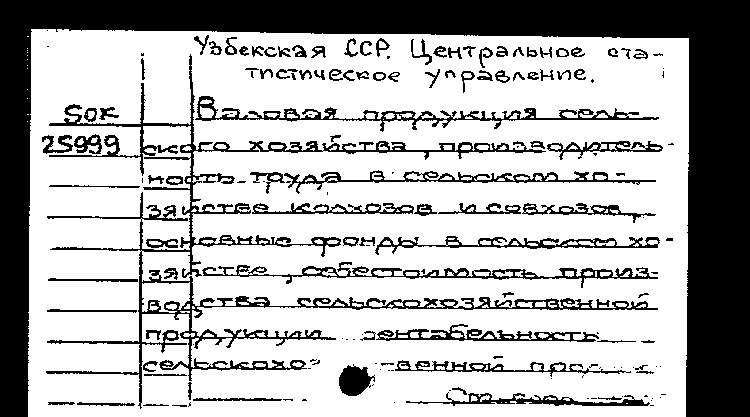 Узбекская ССР. Центральное ста-
тистическое управление.
SOK Валовая продукция сель-
25999 ского хозяйства, производитель-
ность труда в сельском хо-
зяйстве колхозов и совхозов,
основные фонды в сельском хо-
зяйстве, себестоимость произ-
водства сельскохозяйственной
продукции